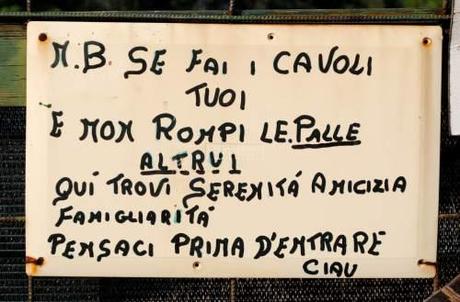 N.B. SE FAI I CAVOLI
TUOI
E NON ROMPI LE.PALLE
ALTRUI
QUÍ TROVI SERENITÁ AMICIZIA
FAMIGLIARITÁ
PENSACI PRIMA D'ENTRARE
CIAU